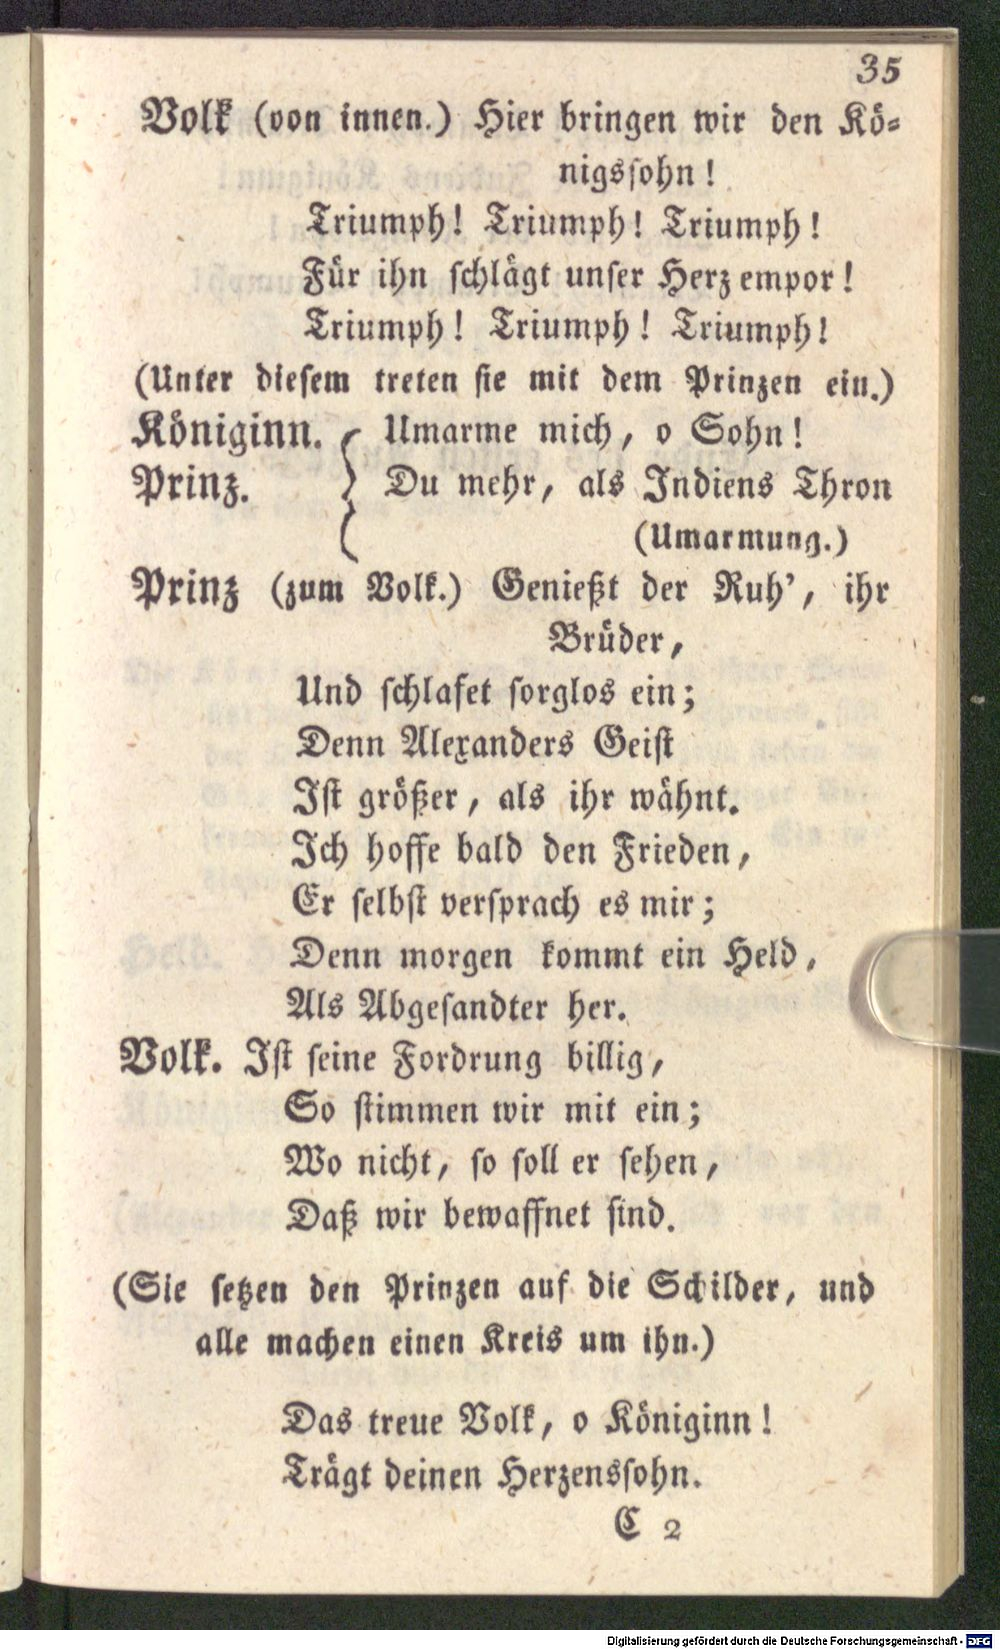 35
Volk (von innen.) Hier bringen wir den Kö⸗
nigsſohn!
Triumph! Triumph! Triumph!
Für ihn ſchlägt unſer Herz empor!
Triumph! Triumph! Triumph!
(Unter dieſem treten ſie mit dem Prinzen ein.)
Königinn. { Umarme mich, o Sohn!
Prinz. Du mehr, als Indiens Thron
(Umarmung.)
Prinz (zum Volk.) Genießt der Ruh', ihr
Brüder,
Und ſchlafet ſorglos ein;
Denn Alexanders Geiſt
Iſt größer, als ihr wähnt.
Ich hoffe bald den Frieden,
Er ſelbſt verſprach es mir;
Denn morgen kommt ein Held,
Als Abgeſandter her.
Volk. Iſt ſeine Fordrung billig,
So ſtimmen wir mit ein;
Wo nicht, ſo ſoll er ſehen,
Daß wir bewaffnet ſind.
(Sie ſetzen den Prinzen auf die Schilder, und
alle machen einen Kreis um ihn.)
Das treue Volk, o Königinn!
Trägt deinen Herzensſohn.
C 2
Digitalisierung gefördert durch die Deutsche Forschungsgemeinschaft - DFG